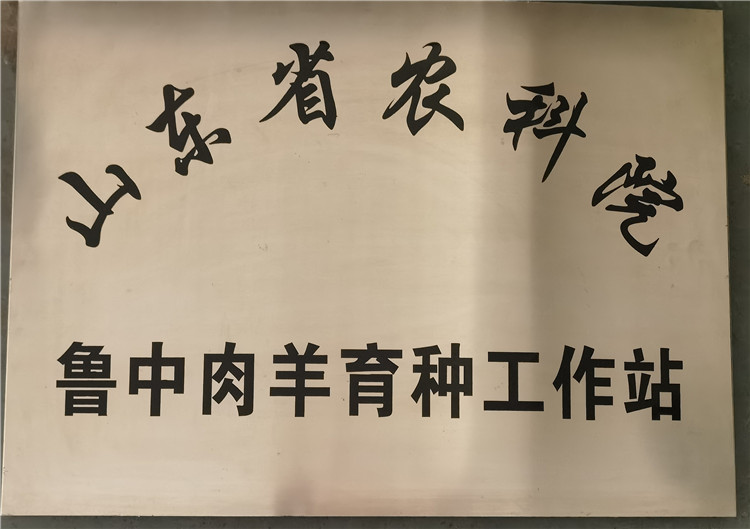 山东省农科院
鲁中肉羊育种工作站